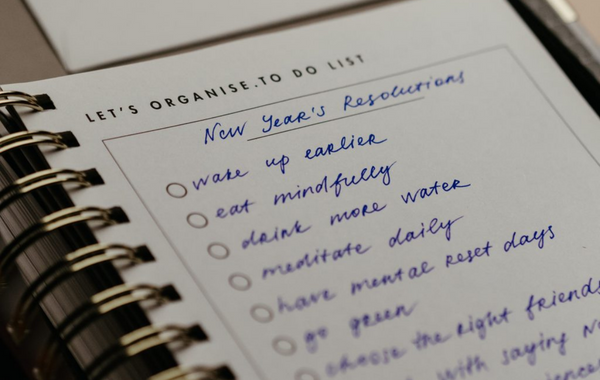 LET'S ORGANISE.TO DO LIST
New Year's Resolutions
wake up earlier
eat mindfully
drink more water
meditate daily
have mental reset days
go green
choose the right friends
with saying